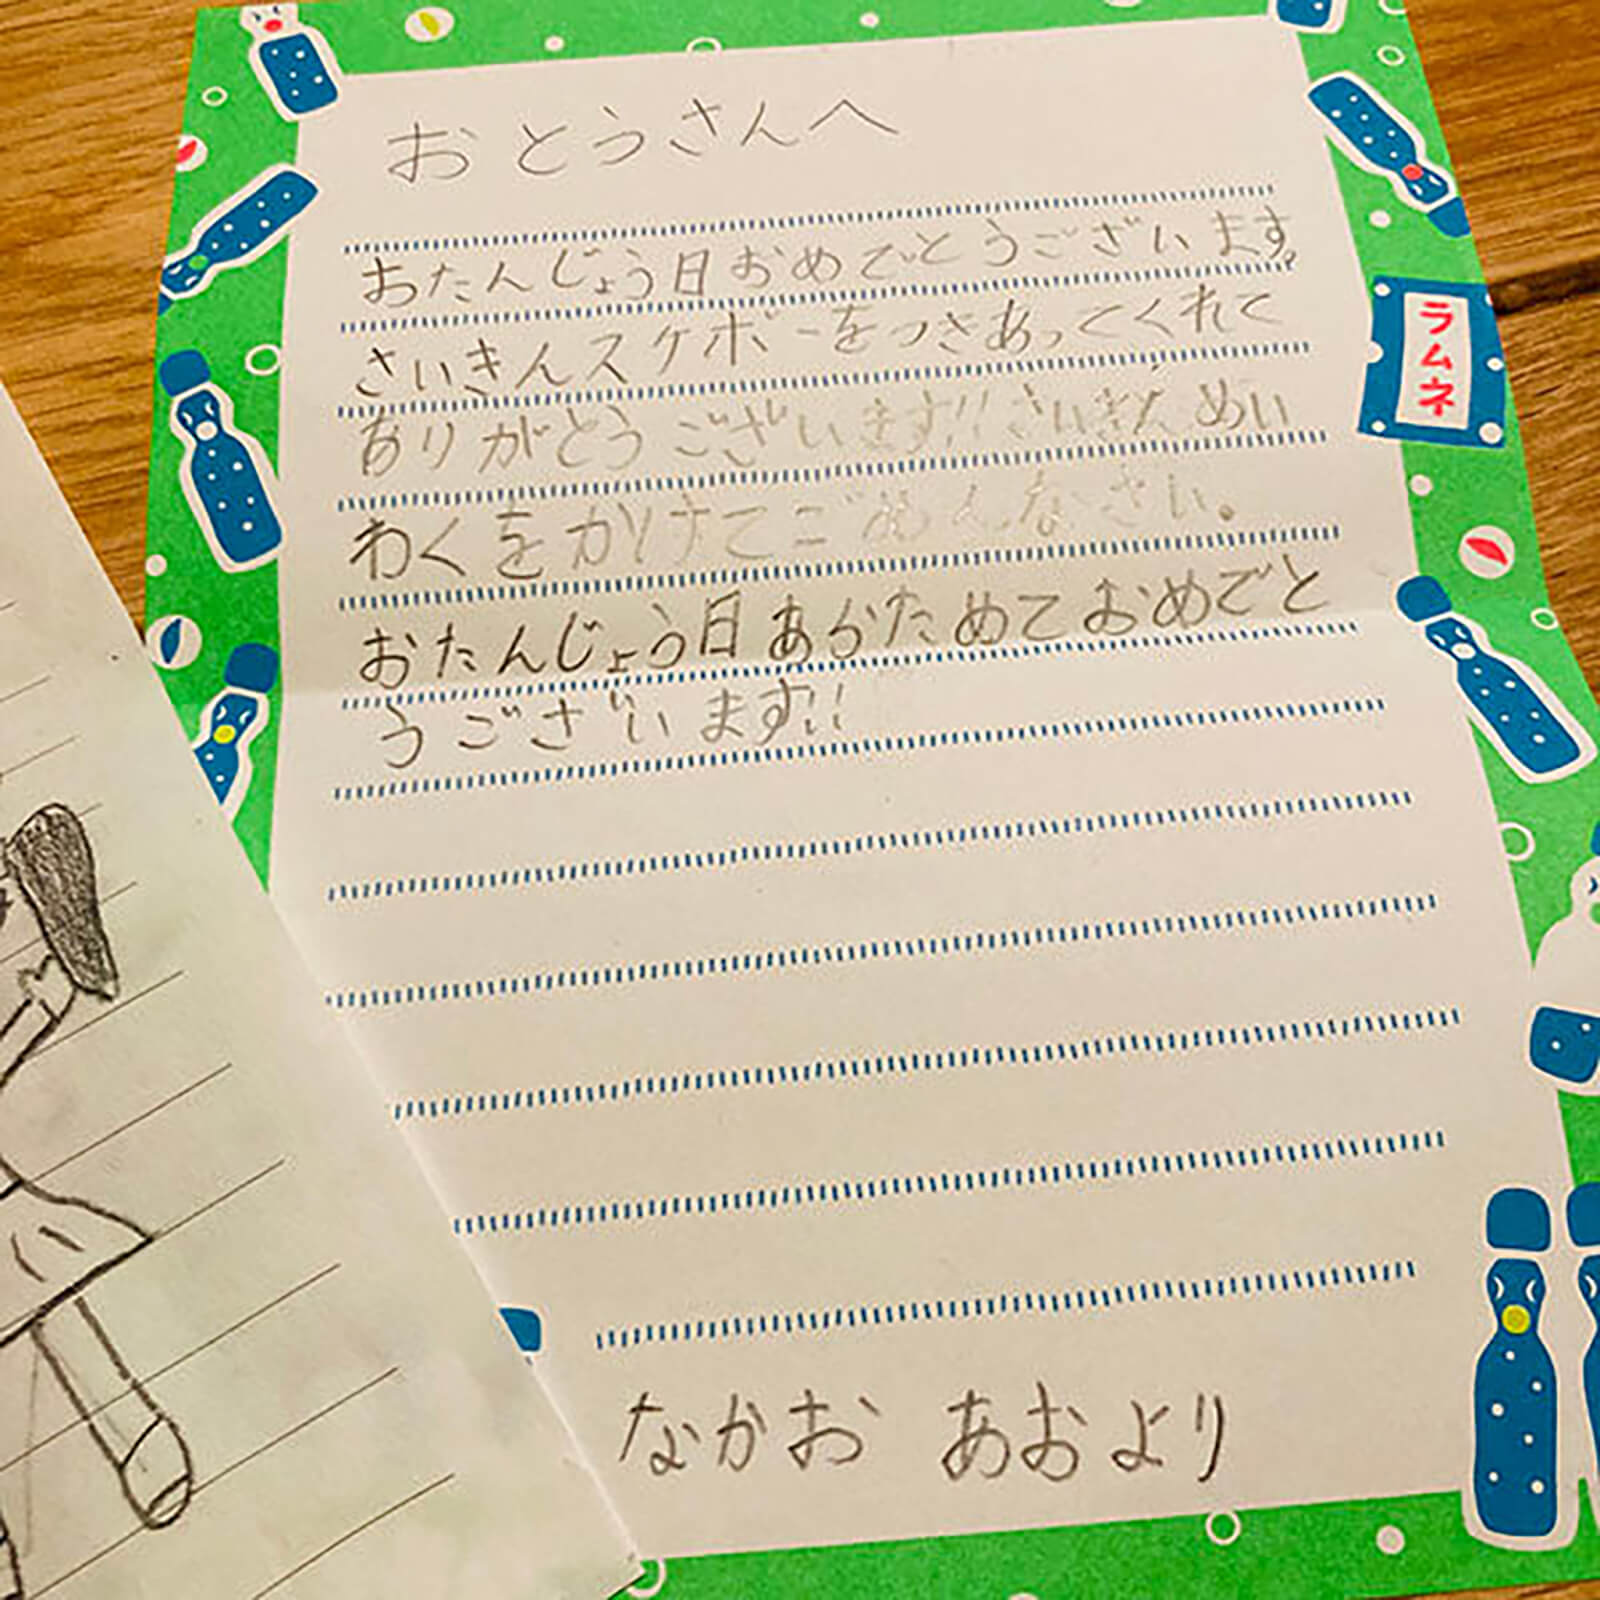 おとうさんへ
おたんじょう日おめでとうございます。
さいきんスケボーをつきあってくれて
ありがとうございます!!さいきんめい
わくをかけてごめんなさい。
おたんじょう日あらためておめでと
うございます!!
なかお あおより
ラムネ